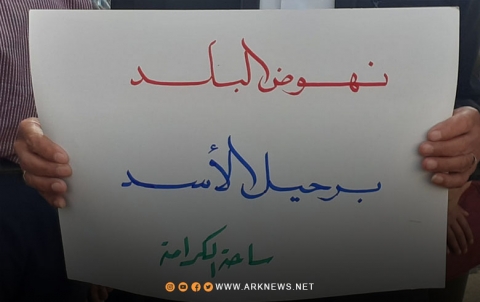 نهوض البلد
برحيل الأسد
ساحة الكرامة
WWW.ARKNEWS.NET